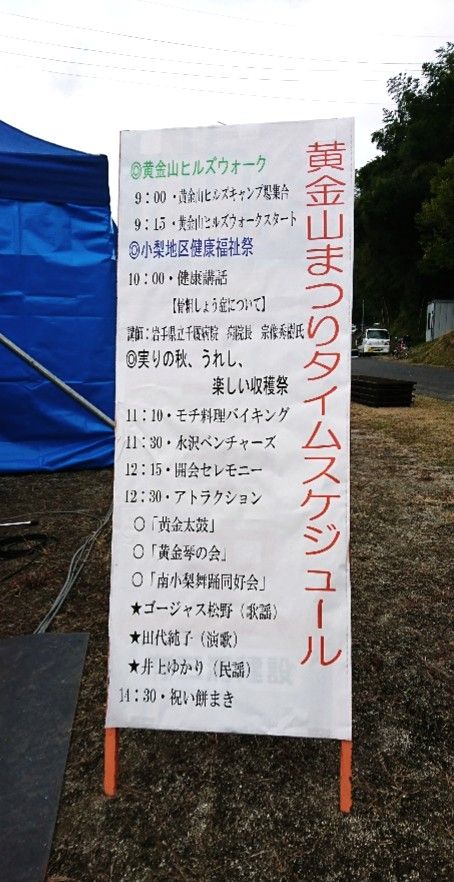 黄金山まつりタイムスケジュール
◎黄金山ヒルズウォーク
9:00・黄金山ヒルズキャンプ場集合
9:15・黄金山ヒルズウォークスタート
◎小梨地区健康福祉祭
10:00・健康講話
【骨粗しょう症について】
講師:岩手県立千厩病院 病院長 宗像秀樹氏
◎実りの秋、うれし、
楽しい収穫祭
11:10・モチ料理バイキング
11:30・水沢ベンチャーズ
12:15・開会セレモニー
12:30・アトラクション
○「黄金太鼓」
○「黄金琴の会」
○「南小梨舞踊同好会」
★ゴージャス松野（歌謡）
★田代純子（演歌）
★井上ゆかり（民謡）
14:30・祝い餅まき